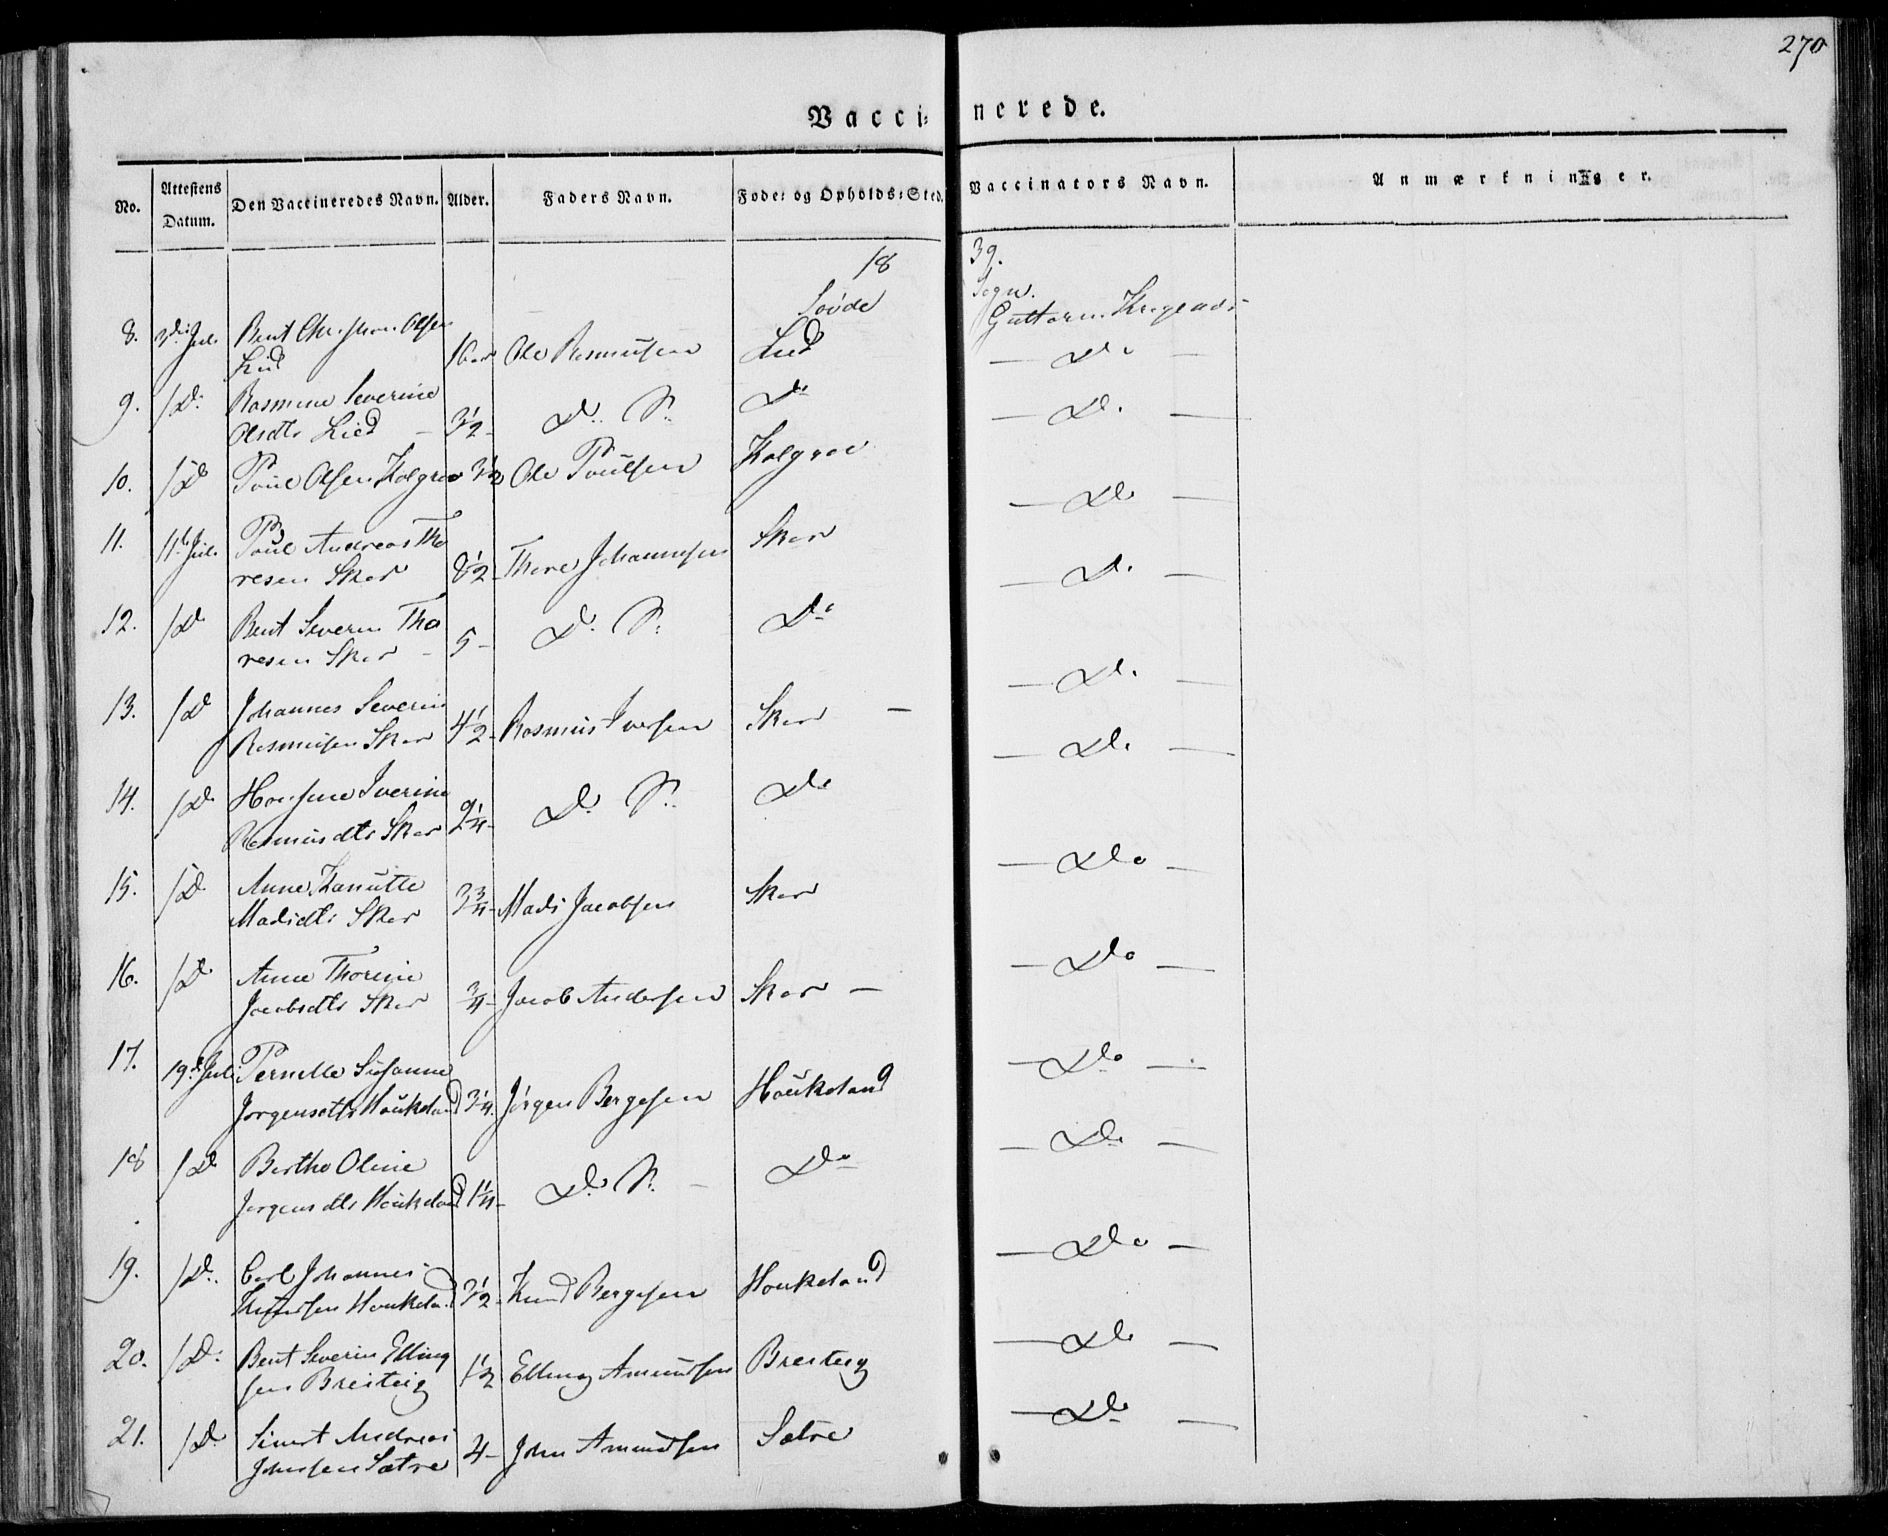 270
Vacci= nerede.
No. Attestens Datum. Den Vaccineredes Navn. Alder. Faders Navn. Føde= og Opholds=Sted. Vaccinators Navn. Anmærkninger.
18 39.
Sovde Sogn.
Guttorm
8. 3die Jul. Bent Christian Olsen
Lied 10 Ole Rasmusen Lied — Do —
9. /Do Rasmine Severine
Olsdtr Lied — 3½ - Do S. Do — Do —
10. /Do Poul Olsen Kolgroe 3½ Ole Poulsen Kolgroe — Do —
11. 11te Jul. Poul Andreas Tho
resen Skar 8½ - Thore Johannesen Skar — Do —
12. /Do Bent Severin Tho
resen Skar - 5 - Do S. Do — Do —
13. /Do Johannes Severin
Rasmusen Skar 4½ - Rasmus Iversen Skar — — Do —
14. /Do Iverine
Rasmusdtr Skar 2¼ - Do S. Do — Do —
15. /Do Anne Kanutte
Madsdtr Skar 3¾ - Mads Jacobsen Skar — Do —
16. /Do Anne Thorine
Jacobsdtr Skar ¾ - Jacob Andersen Skar — — Do —
17. 19de Jul. Pernille Susanne
Jørgensdtr Houkeland 3¼ - Jørgen Bergesen Houkeland — Do —
18 /Do Bertha Oline
Jørgensdtr Houkeland 1¼ - Do S. - Do — Do —
19. /Do Carl Johannes
Knudsen Houkeland 3½ - Knud Bergesen Houkeland — Do —
20. /Do Bent Severin Elling
sen Breiteig 1½ Elling Amundsen Breiteig — Do —
21. /Do Sivert Andreas
Johnsen Sætre 4 - John Amundsen Sætre — Do —